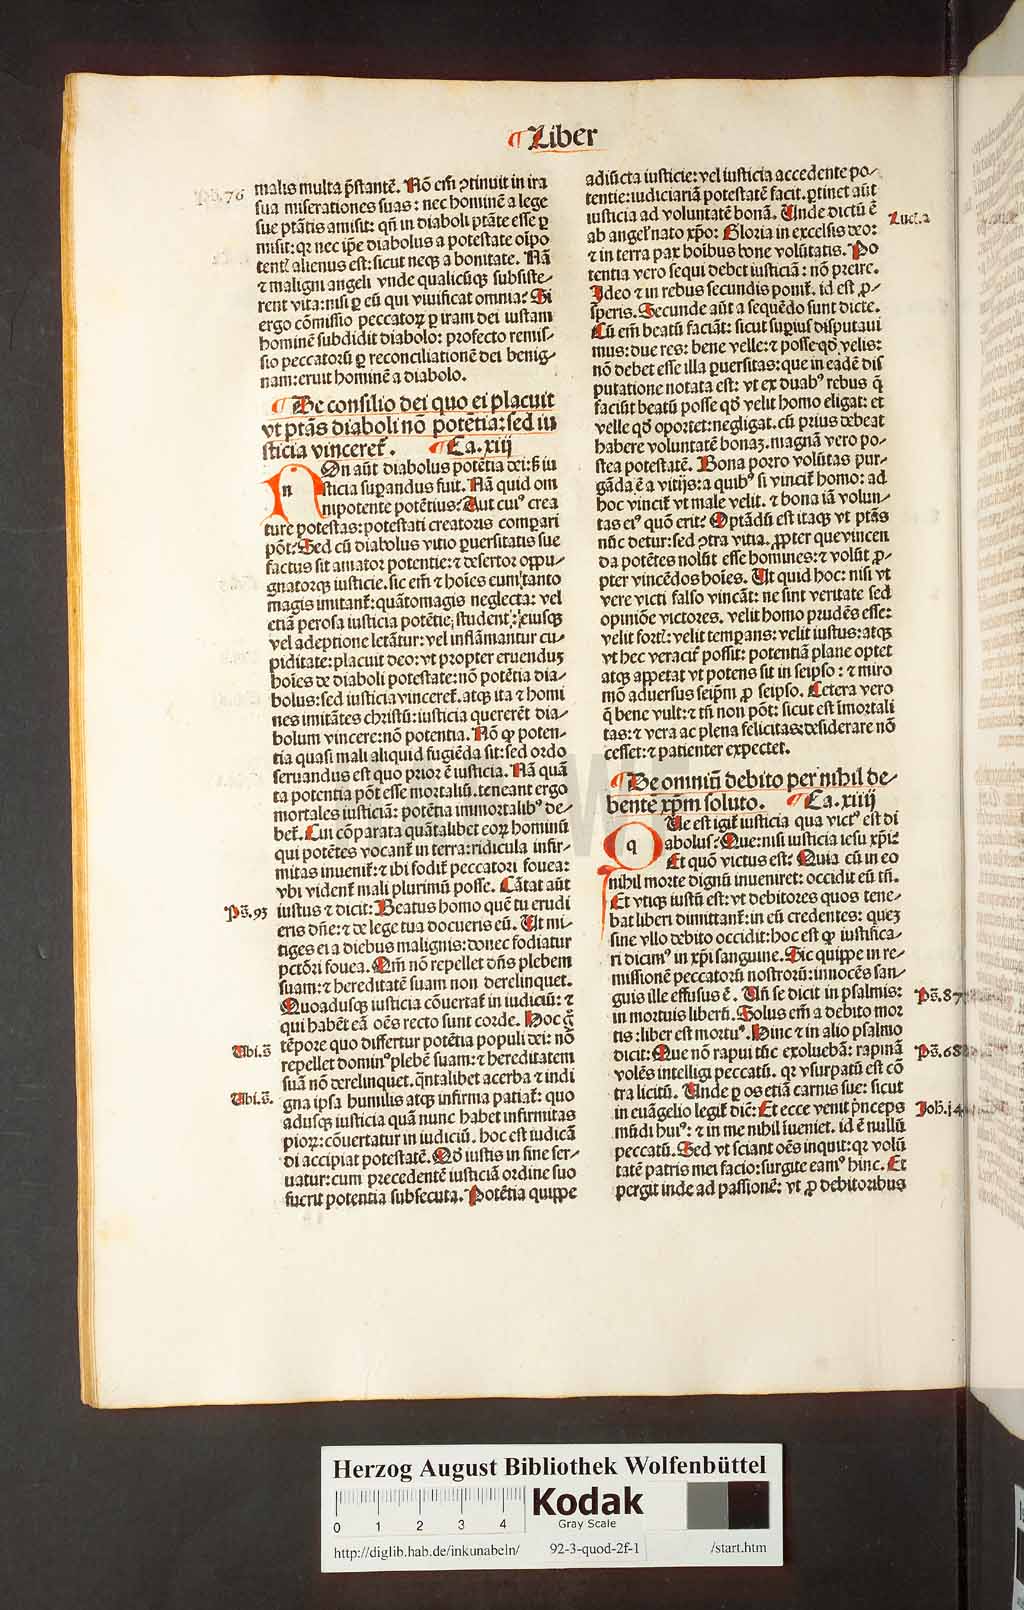 ¶ Liber
Ps. 76
malis multa p̄stantē. Nō em̄ ꝯtinuit in ira
sua miserationes suas: nec hominē a lege
sue ptātis amisit: qn̄ in diaboli ptāte esse ꝑ
misit: qꝛ nec ip̄e diabolus a potestate oīpo
tentꝭ alienus est: sicut neqꝫ a bonitate. Nā
⁊ maligni angeli vnde qualicūqꝫ subsiste⸗
rent vita: nisi ꝑ eū qui viuificat omnia? Si
ergo cōmissio peccatoꝝ ꝑ iram dei iustam
hominē subdidit diabolo: profecto remis⸗
sio peccatorū ꝑ reconciliationē dei benig⸗
nam: eruit hominē a diabolo.
¶ De consilio dei quo ei placuit
vt ptās diaboli nō potētia: sed iu
sticia vinceret᷑. ¶ Ca. xiij
NOn aūt diabolus potētia dei: sꝫ iu
sticia suꝑandus fuit. Nā quid om
nipotente potētius? Aut cuiꝰ crea
ture potestas: potestati creatoris comꝑari
pōt? Sed cū diabolus vitio ꝑuersitatis sue
factus sit amator potentie: ⁊ desertor oppu⸗
gnatorqꝫ iusticie. sic em̄ ⁊ hoīes eum tanto
magis imitant᷑: quātomagis neglecta: vel
etiā perosa iusticia potētie student: eiusqꝫ
vel adeptione letātur: vel inflāmantur cu⸗
piditate: placuit deo: vt propter eruendus
hoīes de diaboli potestate: nō potētia dia⸗
bolus: sed iusticia vinceret᷑. atqꝫ ita ⁊ homi
nes imitātes christū: iusticia quererēt dia⸗
bolum vincere: nō potentia. Nō qꝙ poten⸗
tia quasi mali aliquid fugiēda sit: sed ordo
seruandus est quo prior ē iusticia. Nā quā
ta potentia pōt esse mortaliū. teneant ergo
mortales iusticiā: potētia immortalibꝰ de⸗
bet᷑. Cui cōparata quātalibet eoꝝ hominū
qui potētes vocant᷑ in terra: ridicula infir⸗
mitas inuenit᷑: ⁊ ibi fodit᷑ peccatori fouea:
vbi vident᷑ mali plurimū posse. Cātat aūt
Ps. 93
iustus ⁊ dicit: Beatus homo quē tu erudi
eris dn̄e: ⁊ de lege tua docueris eū. Ut mi⸗
tiges ei a diebus malignis: donec fodiatur
pctōri fouea. Qm̄ nō repellet dn̄s plebem
suam: ⁊ hereditatē suam non derelinquet.
Quoadusqꝫ iusticia cōuertat᷑ in iudiciū: ⁊
qui habēt eā oēs recto sunt corde. Hoc gͦ
Ubi. s̄
tēpore quo differtur potētia populi dei: nō
repellet dominꝰ plebē suam: ⁊ hereditatem
suā nō derelinquet. qn̄talibet acerba ⁊ indi
Ubi. s̄.
gna ipsa humilis atqꝫ infirma patiat᷑: quo
adusqꝫ iusticia quā nunc habet infirmitas
pioꝝ: cōuertatur in iudiciū. hoc est iudicā
di accipiat potestatē. Qḋ iustis in fine ser⸗
uatur: cum precedentē iusticiā ordine suo
fuerit potentia subsecuta. Potētia quippe
adiūcta iusticie: vel iusticia accedente po⸗
tentie: iudiciariā potestatē facit. ꝑtinet aūt
iusticia ad voluntatē bonā. Unde dictū ē
Luc. 2
ab angelꝭ nato xp̄o: Gloria in excelsis deo:
⁊ in terra pax hoībus bone volūtatis. Po
tentia vero sequi debet iusticiā: nō preire.
Ideo ⁊ in rebus secundis ponit᷑. id est ꝓ⸗
speris. Secunde aūt a sequēdo sunt dicte.
Cū em̄ beatū faciāt: sicut suꝑius disputaui
mus: due res: bene velle: ⁊ posse qḋ velis:
nō debet esse illa ꝑuersitas: que in eadē dis
putatione notata est: vt ex duabꝰ rebus q̄
faciūt beatū posse qḋ velit homo eligat: et
velle qḋ oportet: negligat. cū prius debeat
habere voluntatē bonaꝫ. magnā vero po⸗
stea potestatē. Bona porro volūtas pur⸗
gāda ē a vitijs: a quibꝰ si vincit᷑ homo: ad
hoc vincit᷑ vt male velit. ⁊ bona iā volun⸗
tas eiꝰ quō erit? Optādū est itaqꝫ vt ptās
nūc detur: sed ꝯtra vitia. ꝓpter que vincen
da potētes nolūt esse homines: ⁊ volūt ꝓ⸗
pter vincēdos hoīes. Ut quid hoc: nisi vt
vere victi falso vincāt: ne sint veritate sed
opiniōe victores. velit homo prudēs esse:
velit fortꝭ: velit temꝑans: velit iustus: atqꝫ
vt hec veracit᷑ possit: potentiā plane optet
atqꝫ appetat vt potens sit in seipso: ⁊ miro
mō aduersus seip̄m ꝓ seipso. Cetera vero
q̄ bene vult: ⁊ tn̄ non pōt: sicut est īmortali
tas: ⁊ vera ac plena felicitas: desiderare nō
cesset: ⁊ patienter expectet.
¶ De omniū debito per nihil de⸗
bentē xp̄m soluto. ¶ Ca. xiiij
QUe est igit᷑ iusticia qua victꝰ est di
abolus? Que: nisi iusticia iesu xp̄i?
Et quō victus est? Quia cū in eo
nihil morte dignū inueniret: occidit eū tn̄.
Et vtiqꝫ iustū est: vt debitores quos tene⸗
bat liberi dimittant᷑: in eū credentes: queꝫ
sine vllo debito occidit: hoc est qꝙ iustifica⸗
ri dicimꝰ in xp̄i sanguine. Sic quippe in re⸗
missionē peccatorū nostrorū: innocēs san⸗
guis ille effusus ē. Un̄ se dicit in psalmis:
Ps. 87
in mortuis liberū. Solus em̄ a debito mor
tis: liber est mortuꝰ. Hinc ⁊ in alio psalmo
dicit: Que nō rapui tūc exoluebā: rapinā
Ps. 68
volēs intelligi peccatū. qꝛ vsurpatū est cō
tra licitū. Unde ꝑ os etiā carnis sue: sicut
in euāgelio legit᷑ dic̄: Et ecce venit p̄nceps
Joh. 14
mūdi huiꝰ: ⁊ in me nihil īueniet. id ē nullū
peccatū. Sed vt sciant oēs inquit: qꝛ volū
tatē patris mei facio: surgite eamꝰ hinc. Et
pergit inde ad passionē: vt ꝓ debitoribus
Herzog August Bibliothek Wolfenbüttel
0 1 2 3 4
Kodak
Gray Scale
http://diglib.hab.de/inkunabeln/ 92-3-quod-2f-1 /start.htm